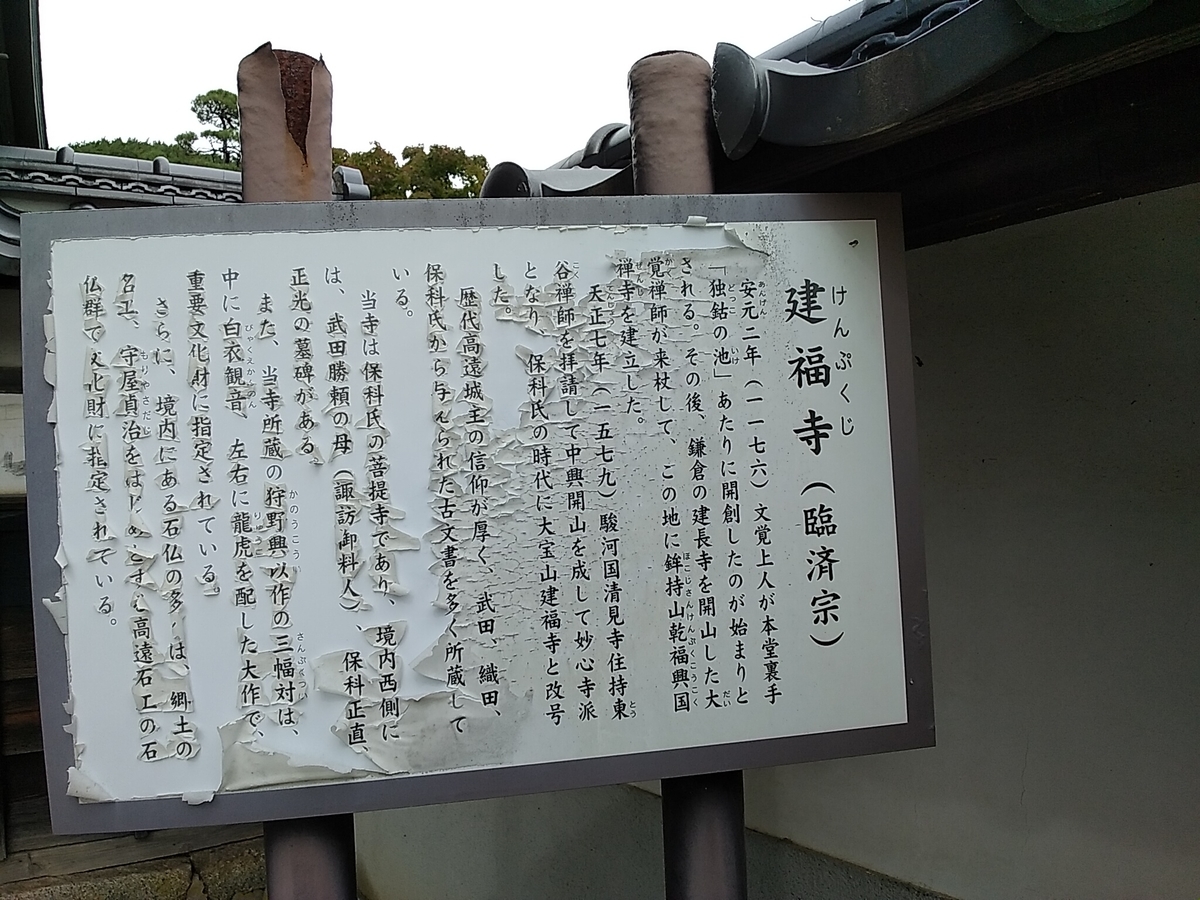 けんぷくじ
建福寺（臨済宗）
あんげん
安元二年（一一七六）文覚上人が本堂裏手
どっこ いけ
「独鈷の池」あたりに開創したのが始まりと
だい
される。その後、鎌倉の建長寺を開山した大
かく ほこじさんけんぷくこうこく
覚禅師が来杖して、この地に鉾持山乾福興国
ぜんじ
禅寺を建立した。
てんしょう とう
天正七年（一五七九）駿河国清見寺住持東
こく
谷禅師を拝請して中興開山を成して妙心寺派
となり、保科氏の時代に大宝山建福寺と改号
した。
歴代高遠城主の信仰が厚く、武田、織田、
保科氏から与えられた古文書を多く所蔵して
いる。
当寺は保科氏の菩提寺であり、境内西側に
は、武田勝頼の母（諏訪御料人）、保科正直、
正光の墓碑がある。
かのうこうい さんぷくつい
また、当寺所蔵の狩野興以作の三幅対は、
びゃくえかんのん
中に白衣観音、左右に龍虎を配した大作で、
重要文化財に指定されている。
さらに、境内にある石仏の多くは、郷土の
もりやさだじ
名工、守屋貞治をはじめとする高遠石工の石
仏群で文化財に指定されている。